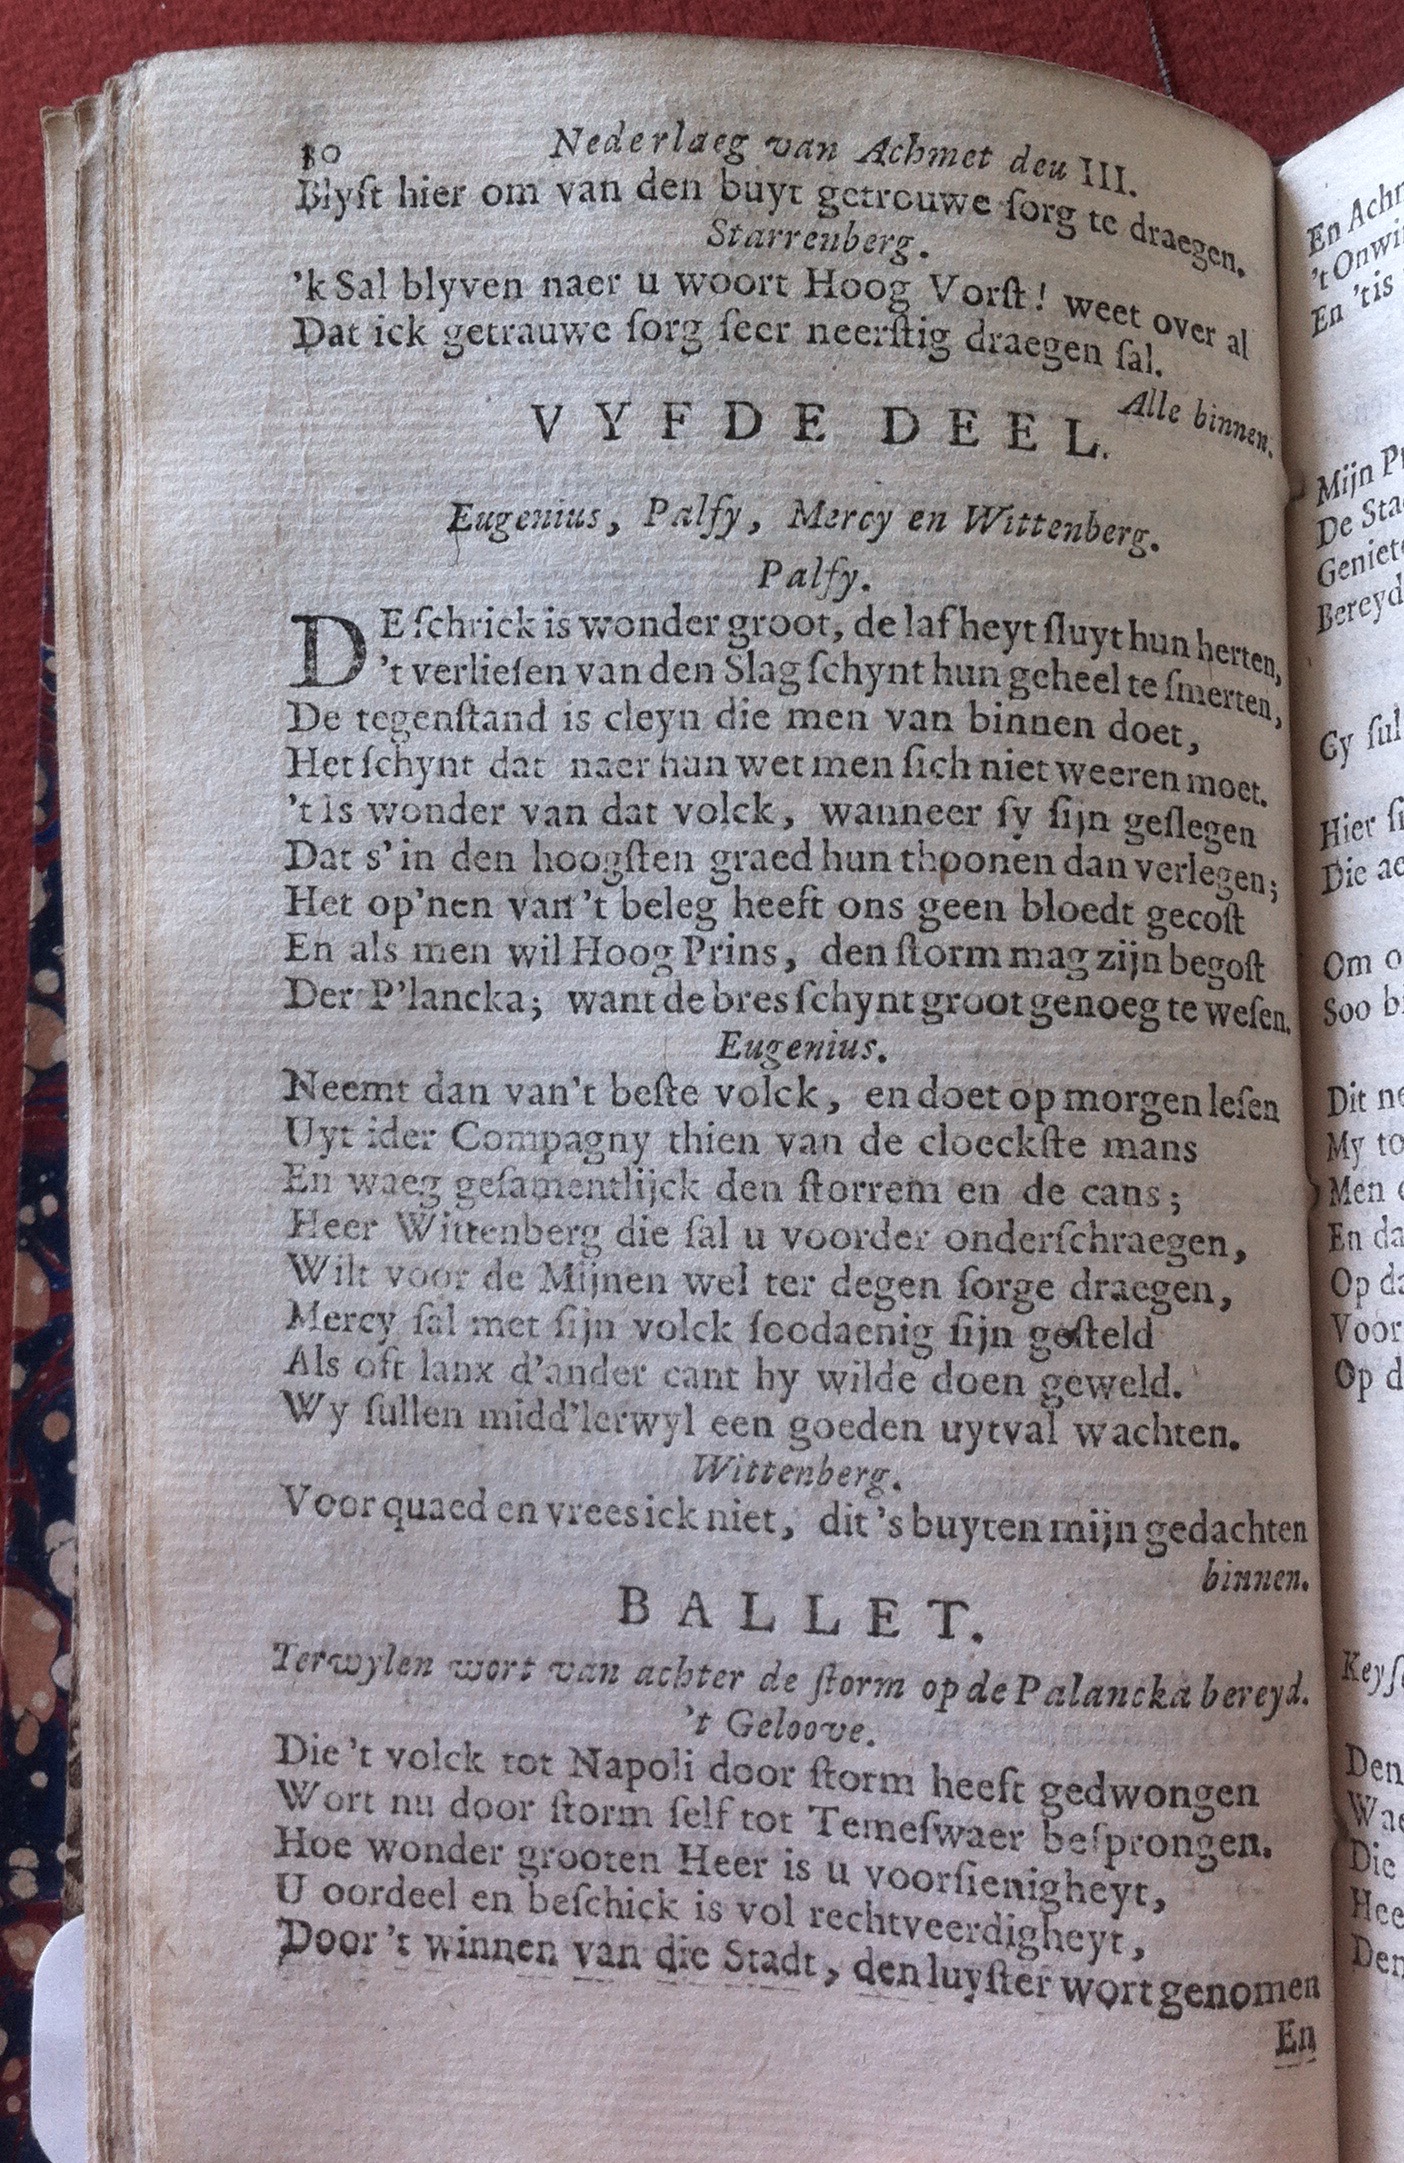 30
Nederlaeg van Achmet deu III.
Blyſt hier om van den buyt getrouwe ſorg te draegen.
Starrenberg.
'k Sal blyven naer u woort Hoog Vorſt! weet over al
Dat ick getrauwe ſorg ſeer neerſtig draegen ſal.
Alle binnen.
VYFDE DEEL.
Eugenius, Palfy, Mercy en Wittenberg.
Palfy.
DE ſchrick is wonder groot, de lafheyt ſluyt hun herten,
't verlieſen van den Slag ſchynt hun geheel te ſmerten,
De tegenſtand is cleyn die men van binnen doet,
Het ſchynt dat naer hun wet men ſich niet weeren moet.
't Is wonder van dat volck, wanneer ſy ſijn geſlegen
Dat s' in den hoogſten graed hun thoonen dan verlegen;
Het op'nen van 't beleg heeft ons geen bloedt gecoſt
En als men wil Hoog Prins, den ſtorm mag zijn begoſt
Der P'lancka; want de bres ſchynt groot genoeg te weſen.
Eugenius.
Neemt dan van't beſte volck, en doet op morgen leſen
Uyt ider Compagny thien van de cloeckſte mans
En waeg geſamentlijck den ſtorrem en de cans;
Heer Wittenberg die ſal u voorder onderſchraegen,
Wilt voor de Mijnen wel ter degen ſorge draegen,
Mercy ſal met ſijn volck ſoodaenig ſijn geſteld
Als oft lanx d'ander cant hy wilde doen geweld.
Wy ſullen midd'lerwyl een goeden uytval wachten.
Wittenberg.
Voor quaed en vrees ick niet, dit 's buyten mijn gedachten
binnen.
BALLET.
Terwylen wort van achter de ſtorm op de Palancka bereyd.
't Geloove.
Die 't volck tot Napoli door ſtorm heeft gedwongen
Wort nu door ſtorm ſelf tot Temeſwaer beſprongen.
Hoe wonder grooten Heer is u voorſienigheyt,
U oordeel en beſchick is vol rechtveerdigheyt,
Door 't winnen van die Stadt, den luyſter wort genomen
En
En Achm
't Onwi
En 'tis
Mijn Pr
De Sta
Geniet
Bereyd
Gy ſul
Hier ſi
Die ae
Om o
Soo bi
Dit ne
My to
Men
En da
Op da
Voor
Op d
Keyſ
Den
Wae
Die
Hee
Den